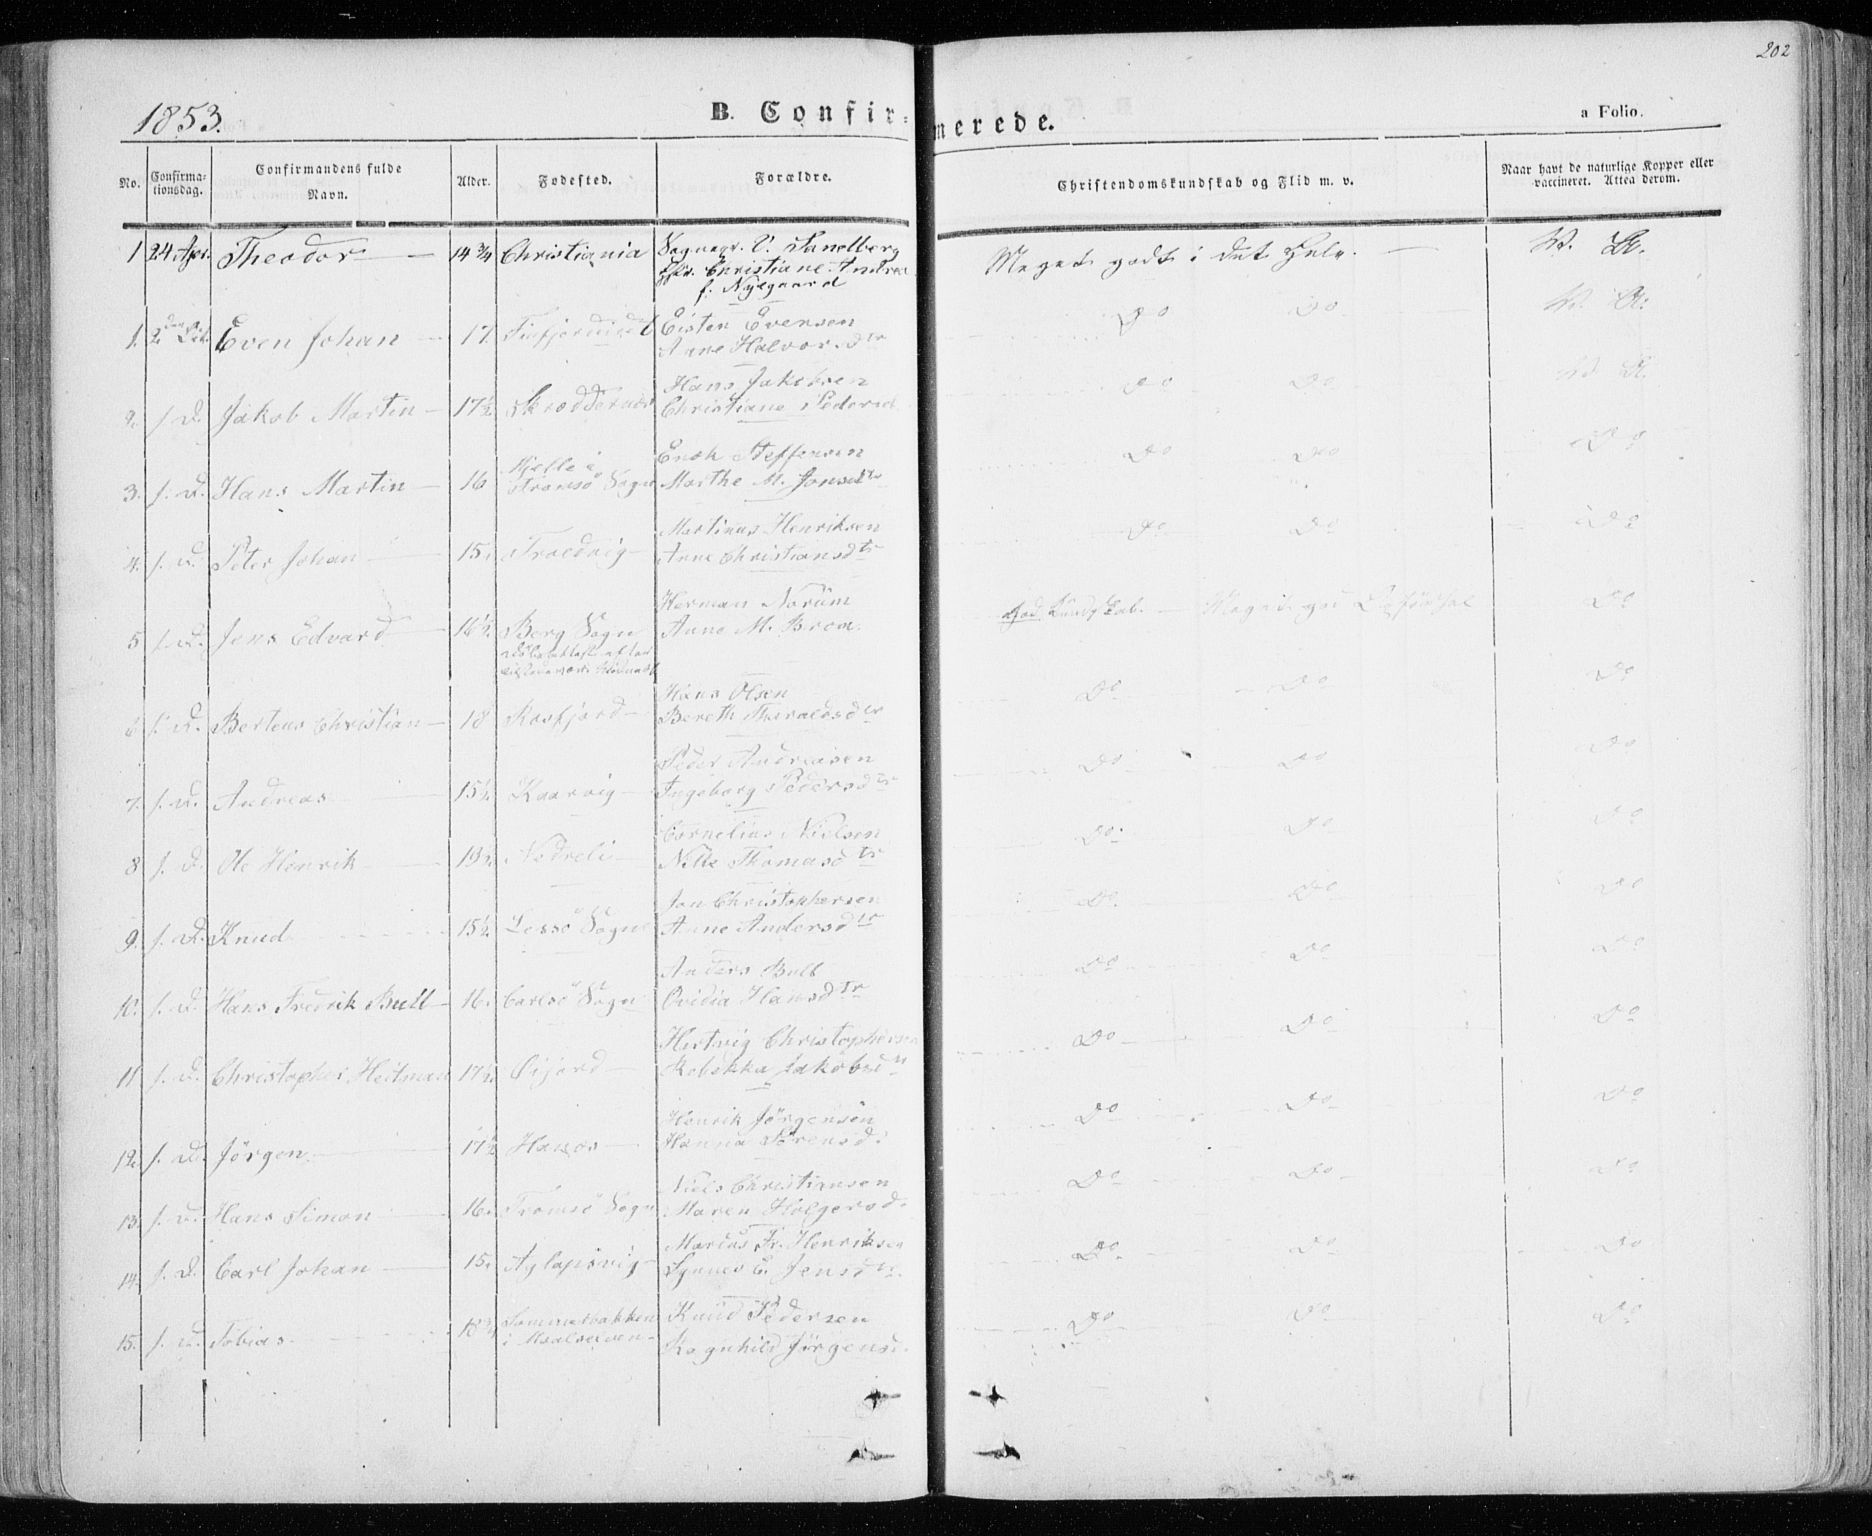 202
1853.
B. Confir=
merede.
a Folio.
No.
Confirma-
tionsdag.
Confirmandens fulde
Navn.
Alder.
Fødested.
Forældre.
Christendomskundskab og Flid m. v.
Naar havt de naturlige Kopper eller
vaccineret. Attea derom.
1 24 Apr. Theodor 14 3/4 Christiania
Christiane Andrea
f. Nygaard
Meget godt i det Hele.
V. A.
1. Even Johan 17. Eisten Evensen
Anne Halvorsdtr
Do Do V. A.
2. s. D. Jakob Martin 17½ Hans Jakobsen
Christiane Pedersd
Do Do V. A.
3. s. D. Hans Martin 16 Tromsö Sogn
Enok Steffensen
Marthe M. Jonsdtr
Do Do Do
4. s. D. Peter Johan 15. Troldvig
Martinus Henriksen
Anne Christiansdtr
Do Do Do
5 s. D. Jens Edvard 16½ Berg Sogn
Herman Norum
Anne M.
God Kundskab. Meget god Do
6 s. D. Berteus Christian 18 Rosfjord
Hans Olsen
Bereth
Do Do Do
7. s. D. Andreas 15½ Kaarvig
Peder Andreasen
Ingeborg Pedersdtr
Do Do Do
8 s. D. Ole Henrik Nedreli
Cornelius Nielsen
Nille Thomasdtr
Do Do Do
9. s. D. Knud 15½ Lessö Sogn
Jon Christophersen
Anne Andersdtr
Do Do Do
10. s. D. Hans Fredrik Bull 16. Carlsö Sogn
Anders Bull
Ovidia Hansdtr
Do Do Do
11 s. D. Christopher Heitman 17½ Öijord
Hertvig Christophersen
Rebekka Jakobsdtr
Do Do Do
12. s. D. Jörgen 17½
Henrik Jörgensen
Hanna Sörensd.
Do Do Do
13. s. D. Hans Simon 16. Tromsö Sogn
Niels Christiansen
Maren Holgersd.
Do Do Do
14. s. D. Carl Johan 15. Aglapsvig
Marcus Fr. Henriksen
E. Jensdtr.
Do Do Do
15. s. D. Tobias
i Maalselven
Knud Pedersen
Ragnhild Jörgensd.
Do Do Do